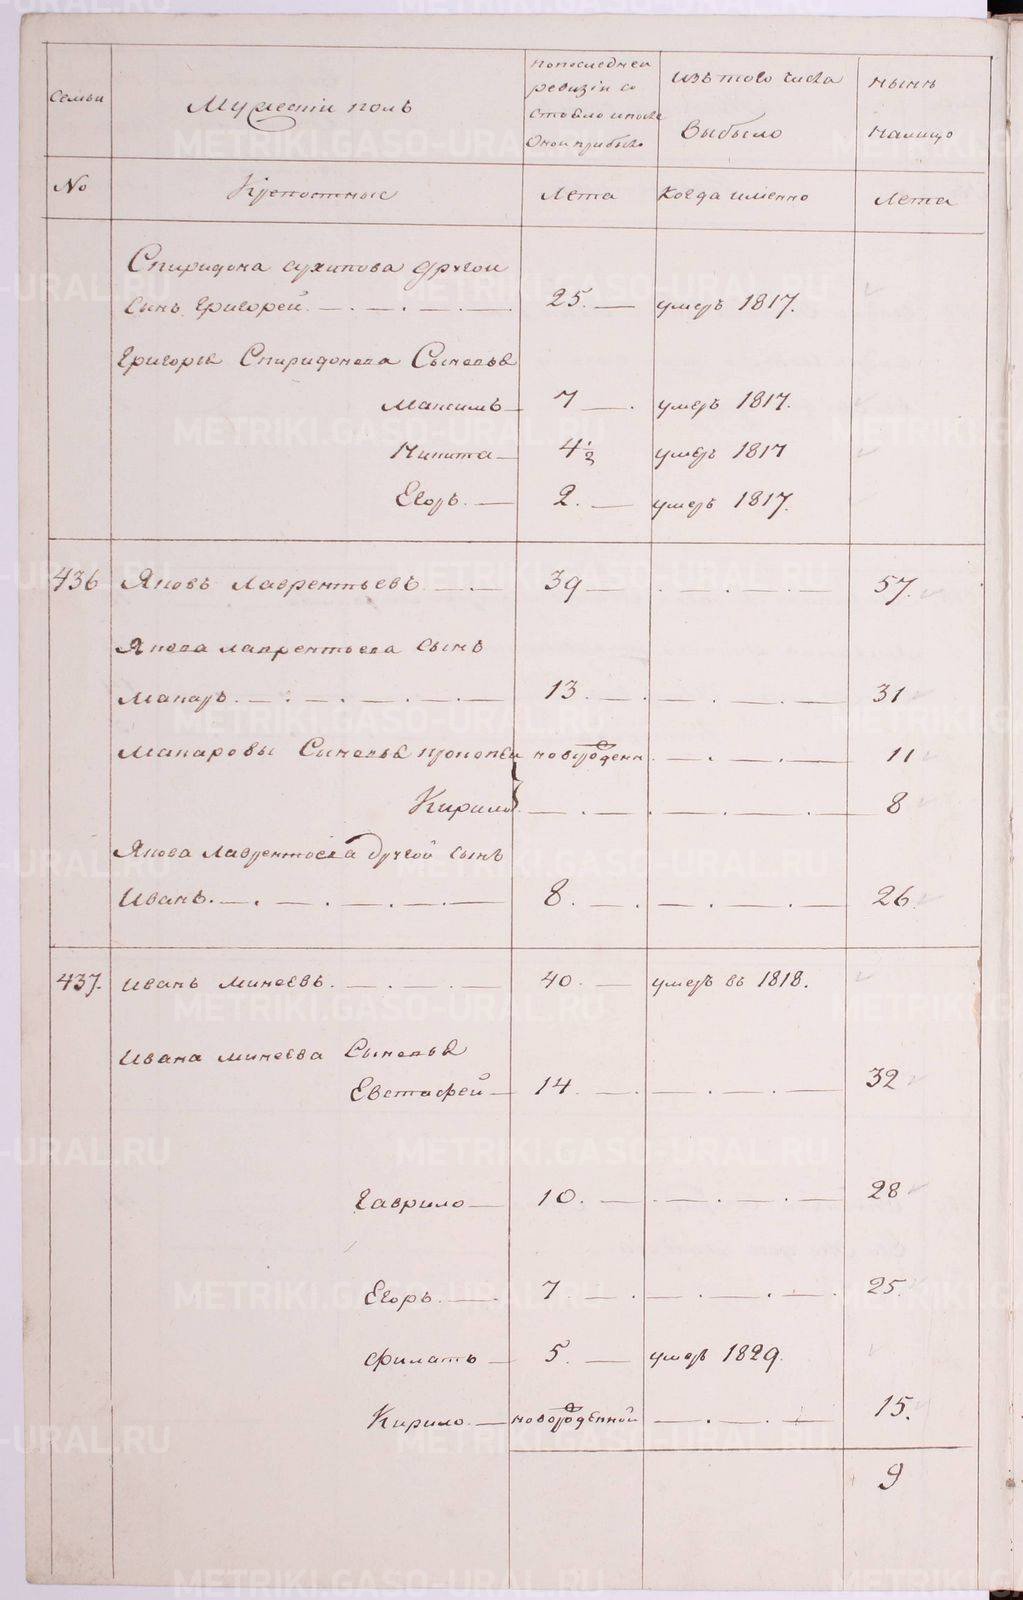 Семьи
Мужескій полъ
по последней
ревизіи со
стояло и после
оной прибыло
изъ того числа
выбыло
ныне
налицо
No
Крепостные
Лета
Когда именно
Лета
Спиридона Архипова другой
сынъ Григорей. 25. умеръ 1817.
Григорья Спиридонова Сыновья
Максимъ 7 умеръ 1817.
Никита 4 1/2 умеръ 1817
Егоръ. 2. умеръ 1817.
436 Яковъ Лаврентьевъ 39 57.
Якова Лаврентьева сынъ
Макаръ. 13. 31
Макаровы Сыновья Прокопей новорожденн. 11
Кирило 8
Якова Лаврентьева другой сынъ
Иванъ. 8. 26.
437. Иванъ Минеевъ. 40. умеръ въ 1818.
Ивана Минеева Сыновья
Евстафей 14. 32
Гаврило 10. 28
Егоръ. 7. 25.
Филатъ 5. умеръ 1829.
Кирило. новорожденной 15.
9
METRIKI.GASO-URAL.RU